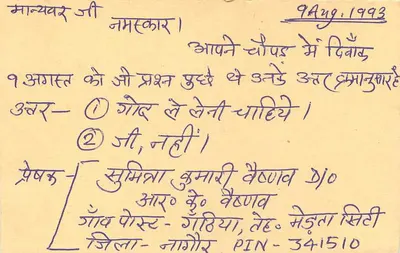 मान्यवर जी
9 Aug. 1993
नमस्कार।
आपने चौपड़ में दिनाँक
१ अगस्त को जो प्रश्न पुछे थे उनके उत्तर क्रमानुसार है
उत्तर — ① गोद ले लेनी चाहिये।
② जी, नहीं।
प्रेषक - सुमित्रा कुमारी वैष्णव D/o
आर॰ के॰ वैष्णव
गाँव पोस्ट - गँठिया, तेह॰ मेड़ता सिटी
जिला - नागौर PIN - 341510